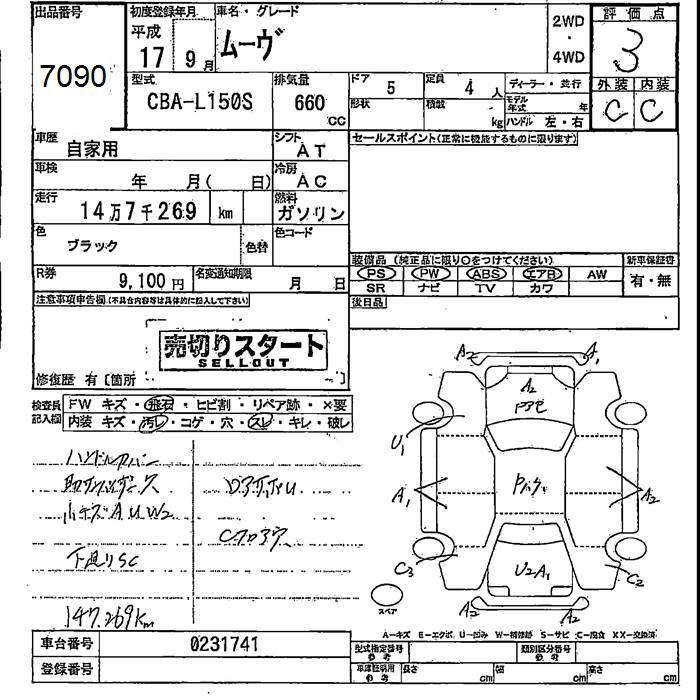 出品番号
7090
初度登録年月
平成
17 9月
車名・グレード
ムーヴ
2WD
4WD
評価点
3
外装 内装
C C
型式
CBA-L150S
排気量
660
CC
ドア 5
定員 4 人
ディーラー・並行
形状
積載 kg
モデル年式 年
ハンドル 左・右
車歴
自家用
シフト
AT
セールスポイント(正常に機能するものに限ります)
車検
年 月( 日)
冷房
AC
走行
14万7千269 km
燃料
ガソリン
色
ブラック
色替
色コード
装備品 (純正品に限り○をつけてください)
新車保証書
PS PW ABS エアB AW
SR ナビ TV カワ
有・無
R券
9,100円
名変通知期限
月 日
後日品
注意事項申告欄(不具合内容等は具体的に記入して下さい)
売切りスタート
SELLOUT
修復歴 有[箇所 ]
検査員
記入欄
FW キズ・飛石・ヒビ割・リペア跡・×要
内装 キズ・汚レ・コゲ・穴・スレ・キレ・破レ
ハンドルカバー
小キズAUW2
下廻りSC
147.269km
A2 A1
A2
U1
A1 A2
C3 C2
U2A1
A2 A2
スペア
A-キズ E-エクボ U-凹み W-補修跡 S-サビ C-腐食 XX-交換済
車台番号
0231741
登録番号
型式指定番号
参考
類別区分番号
参考
車庫証明用
参考
長さ cm
幅 cm
高さ cm